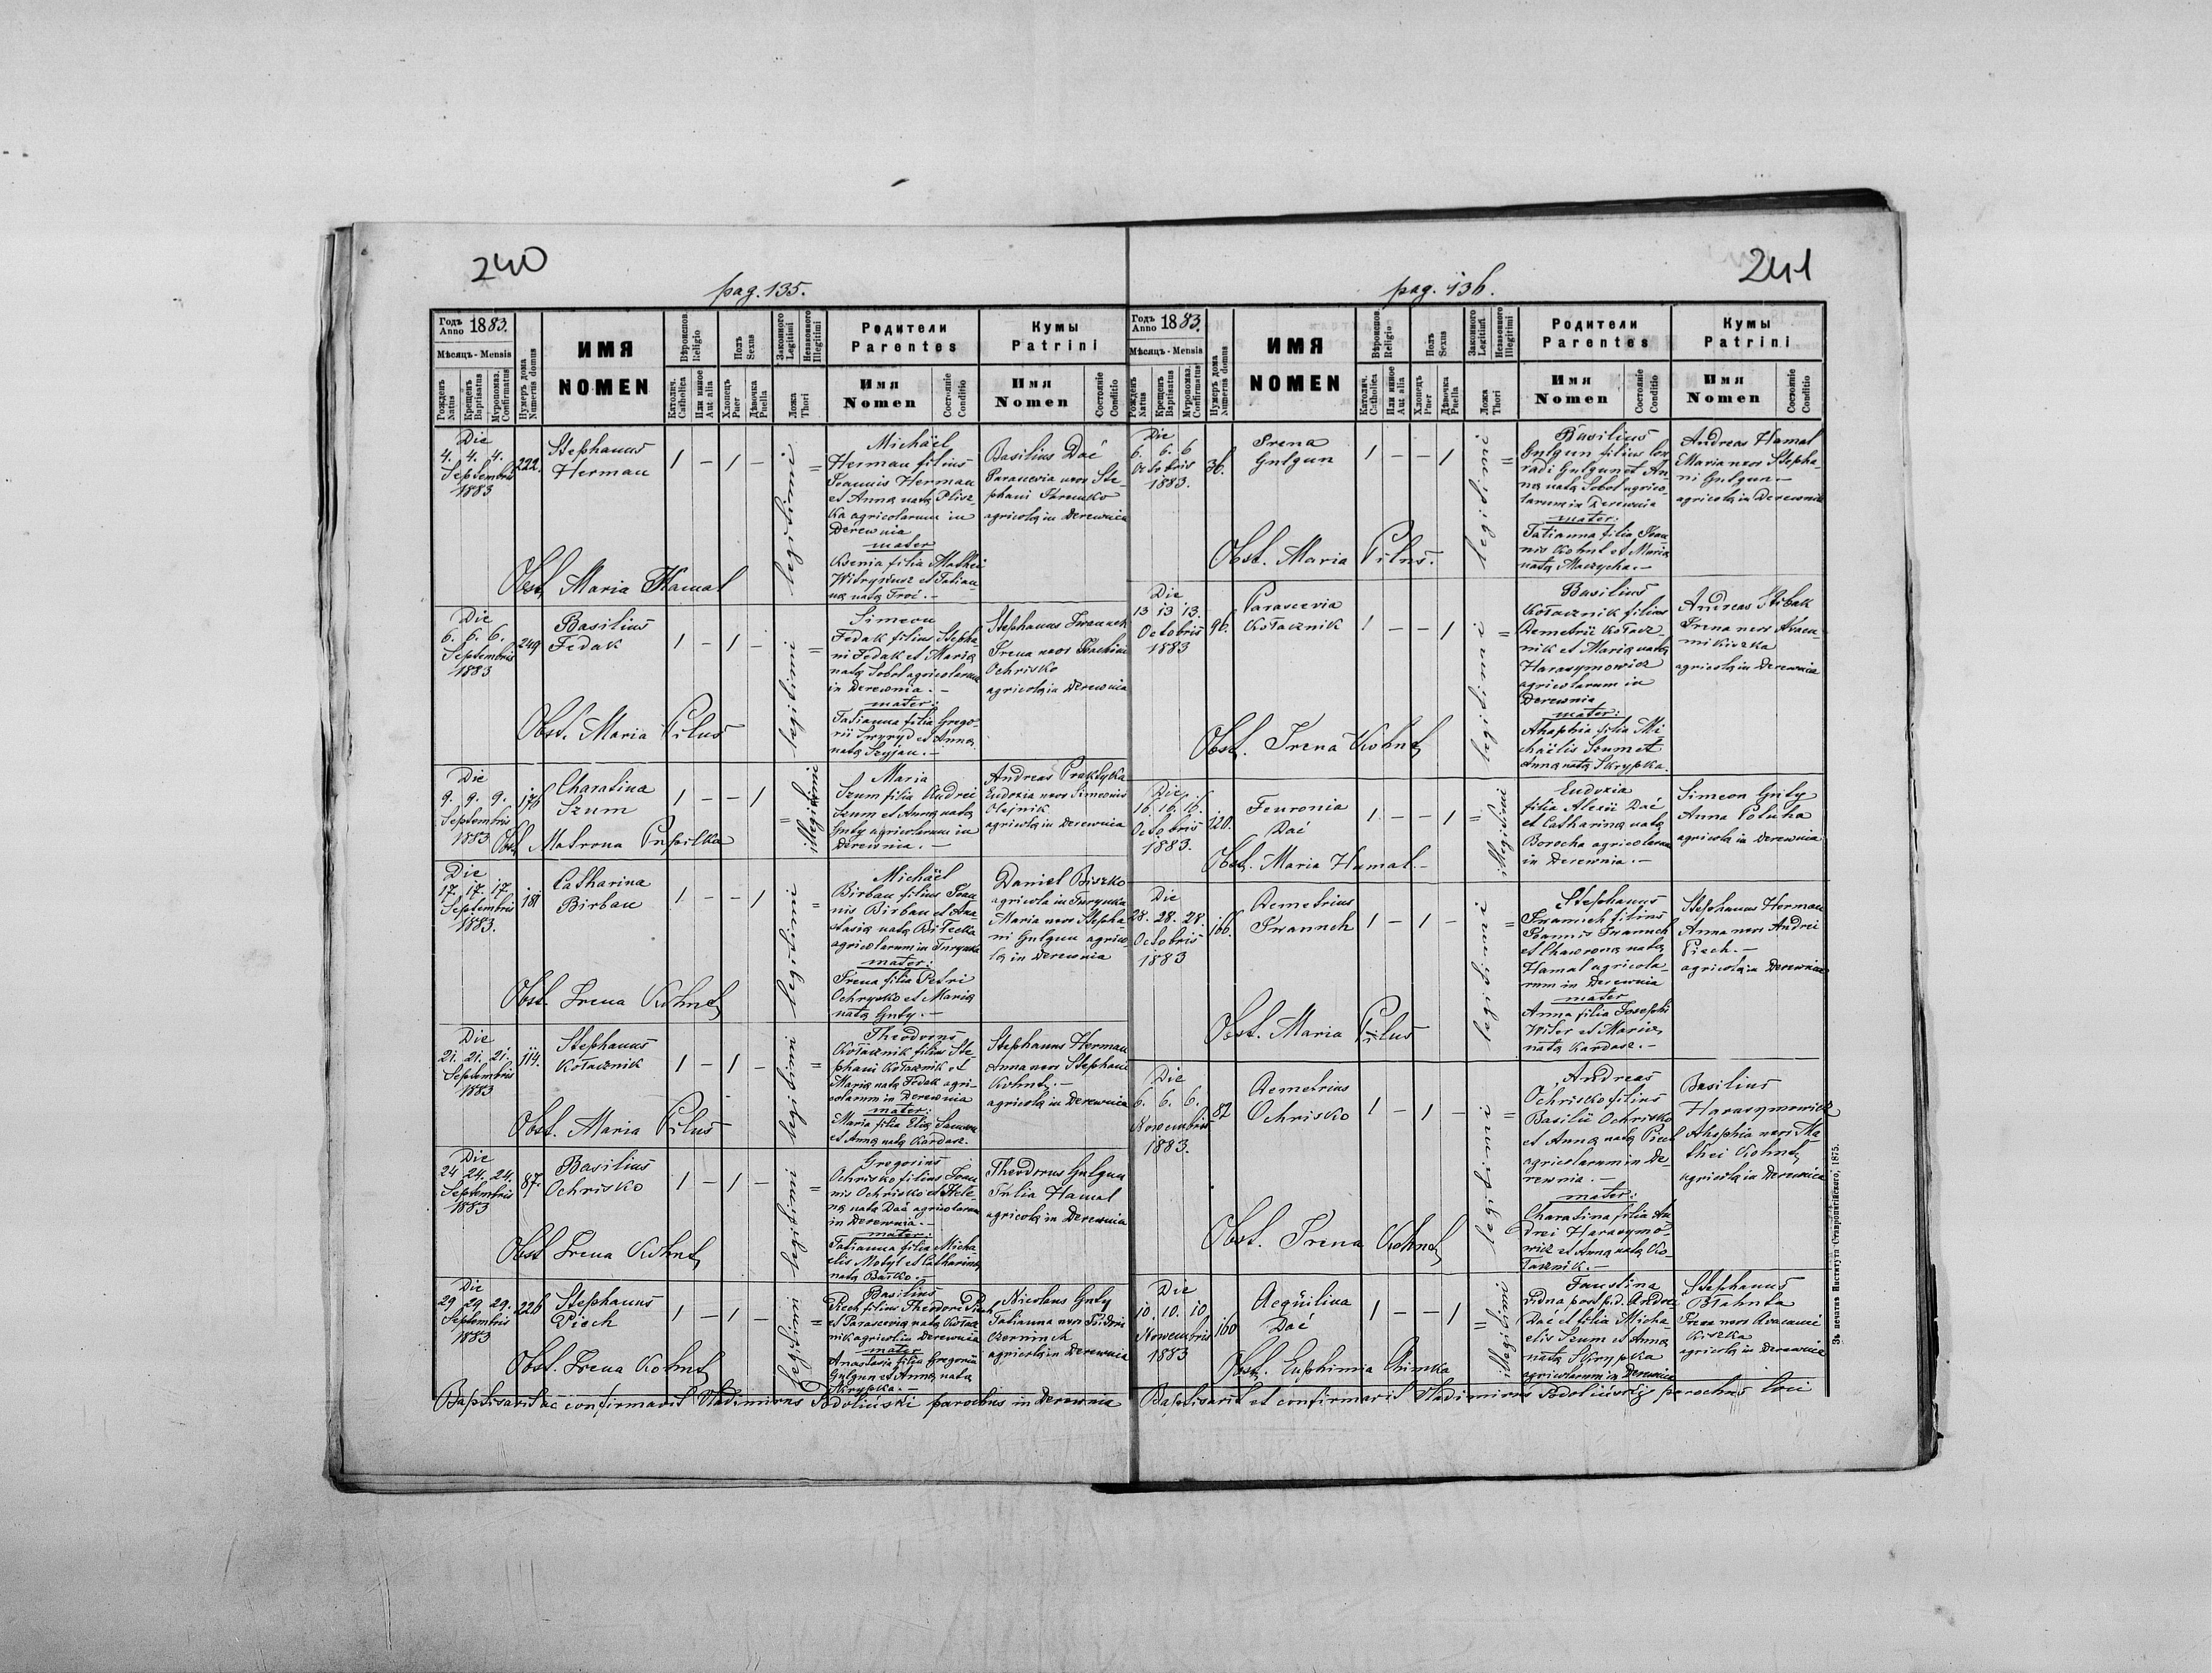 240
pag. 135.
Годъ Anno 1883.
Мѣсяцъ - Mensis
Рожденъ Natus
Крещенъ Baptisatus
Муропомаз. Confirmatus
Нумеръ дома Numerus domus
ИМЯ
NOMEN
Вѣроисповѣд. Religio
Католич. Catholica
Или инное Aut alia
Полъ Sexus
Хлопецъ Puer
Дѣвочка Puella
Законного Legitimi
Незаконного Illegitimi
Ложа Thori
Родители
Parentes
Имя
Nomen
Состояніе
Conditio
Кумы
Patrini
Имя
Nomen
Состояніе
Conditio
Die
4. 4. 4.
Septembris
1883
222.
Stephanus
Herman
1 - 1 -
legitimi
=
Michaël
Herman filius
Joannis Herman
et Anna nata Plisz-
ka agricolarum in
Derewnia
mater
Ksenia filia Mathei
et Tatian-
na nata Troć. -
Basilius Dać
Parascevia uxor Ste-
phani
agricolae in Derewnia
Obst. Maria Hamal
Die
6. 6. 6.
Septembris
1883
249
Basilius
Fedak
1 - 1 -
legitimi
=
Simeon
Fedak filius Stepha-
ni Fedak et Maria
nata Sobol agricolarum
in Derewnia. -
mater:
Tatianna filia Grego-
rii et Anna
nata
Stephanus Iwanuch
Irena uxor
Ochrisko
agricolae in Derewnia
Obst. Maria Pilus
Die
9. 9. 9.
Septembris
1883
176
Charatina
Szum
1 - - 1
=
illegitimi
Maria
Szum filia Andrei
Szum et Anna nata
Gnty agricolarum in
Derewnia. -
Andreas Praktyka
Eudoxia uxor Simeonis
Olejnik
agricolae in Derewnia
Obst. Matrona Pupilka
Die
17. 17. 17.
Septembris
1883.
181
Catharina
Birban
1 - - 1
legitimi
=
Michaël
Birban filius Joan-
nis Birban et Ana-
stasia nata Bilecka
agricolarum in Turynka
mater:
Irena filia Petri
Ochrysko et Maria
nata Gnty. -
Daniel Biszko
agricola in Turynka
Maria uxor Stepha-
ni Gulgun agrico-
la in Derewnia
Obst. Irena Kohut
Die
21. 21. 21.
Septembris
1883
114.
Stephanus
Kołacznik
1 - 1 -
legitimi
=
Theodorus
Kołacznik filius Ste-
phani Kołacznik et
Maria nata Fedak agri-
colarum in Derewnia
mater:
Maria filia Elia
et Anna nata Kardasz.
Stephanus Herman
Anna uxor Stephani
Kohut. -
agricolae in Derewnia
Obst. Maria Pilus
Die
24 24. 24.
Septembris
1883
87.
Basilius
Ochrisko
1 - 1 -
legitimi
=
Gregorius
Ochrisko filius Joan-
nis Ochrisko et Hele-
na nata Dać agricolarum
in Derewnia. -
mater:
Tatianna filia Micha-
elis Motyl et Catharina
nata
Theodorus Gulgun
Julia Hamal
agricolae in Derewnia
Obst Irena Kohut
Die
29 29 29.
Septembris
1883
226
Stephanus
Piech
1 - 1 -
legitimi
=
Basilius
Piech filius Theodori Piech
et Parascevia nata Kołacz-
nik agricolis Derewnia
mater
Anastasia filia Gregorii
Gulgun et Anna nata
Skrypka. -
Nicolaus Gnty
Tatianna uxor Isidori
agricolae in Derewnia
Obst. Irena Kohut
Baptisavit ac confirmavit Vladimirus Podoliński parochus in Derewnia
241
pag. 136.
Годъ Anno 1883.
Мѣсяцъ - Mensis
Рожденъ Natus
Крещенъ Baptisatus
Муропомаз. Confirmatus
Нумеръ дома Numerus domus
ИМЯ
NOMEN
Вѣроисповѣд. Religio
Католич. Catholica
Или инное Aut alia
Полъ Sexus
Хлопецъ Puer
Дѣвочка Puella
Законного Legitimi
Незаконного Illegitimi
Ложа Thori
Родители
Parentes
Имя
Nomen
Состояніе
Conditio
Кумы
Patrini
Имя
Nomen
Состояніе
Conditio
Die
6. 6. 6
Octobris
1883.
36.
Irena
Gulgun
1 - - 1
legitimi
=
Basilius
Gulgun filius Con-
radi Gulgun et An-
na nata Sobol agrico-
larum in Derewnia
mater:
Tatianna filia Joan-
nis Kohut et Maria
nata Maczycha. -
Andreas Hamal
Maria uxor Stepha-
ni Gulgun -
agricolae in Derewnia
Obst. Maria Pilus.
Die
13 13 13.
Octobris
1883
96.
Parascevia
Kołacznik
1 - - 1
legitimi
=
Basilius
Kołacznik filius
Demetrii Kołacz-
nik et Maria nata
Harasymowicz
agricolarum in
Derewnia
mater:
Ahaphia filia Mi-
chaëlis Szum et
Anna nata Skrypka.
Andreas
Irena uxor
agricolae in Derewnia
Obst. Irena Kohut
Die
16. 16. 16.
Octobris
1883.
120.
Feuronia
Dać
1 - - 1
=
illegitimi
Eudoxia
filia Alexii Dać
et Catharina nata
Borocha agricolarum
in Derewnia. -
Simeon Gnty
Anna Poluha
agricolae in Derewnia
Obst. Maria Hamal. -
Die
28. 28. 28.
Octobris
1883
166.
Demetrius
Iwanuch
1 - 1 -
legitimi
=
Stephanus
Iwanuch filius
Joannis Iwanuch
et Chawrona nata
Hamal agricola-
rum in Derewnia
mater
Anna filia Josephi
et Maria
nata Kardasz. -
Stephanus Herman
Anna uxor Andrei
Piech. -
agricolae in Derewnia
Obst. Maria Pilus
Die
6. 6. 6.
Novembris
1883.
87
Demetrius
Ochrisko
1 - 1 -
legitimi
=
Andreas
Ochrisko filius
Basilii Ochrisko
et Anna nata Piech
agricolarum in De-
rewnia. -
mater:
Charatina filia An-
drei Harasymo-
wicz et Anna nata Ko-
łacznik. -
Basilius
Harasymowicz
Ahaphia uxor Ma-
thei Kohut
agricolae in Derewnia
Obst. Irena Kohut
Die
10. 10. 10
Novembris
1883
160
Acquilina
Dać
1 - - 1
=
illegitimi
Faustina
Vidua post p.d. Andrea
Dać et filia Micha-
elis Szum et Anna
nata Skrypka
agricolarum in Derewnia
Stephanus
Irena uxor
Kiszka
agricolae in Derewnia
Obst. Euphimia
Baptisavit et confirmavit Vladimirus Podoliński parochus loci
Зъ печатнѣ Института Ставропигійского, 1875.